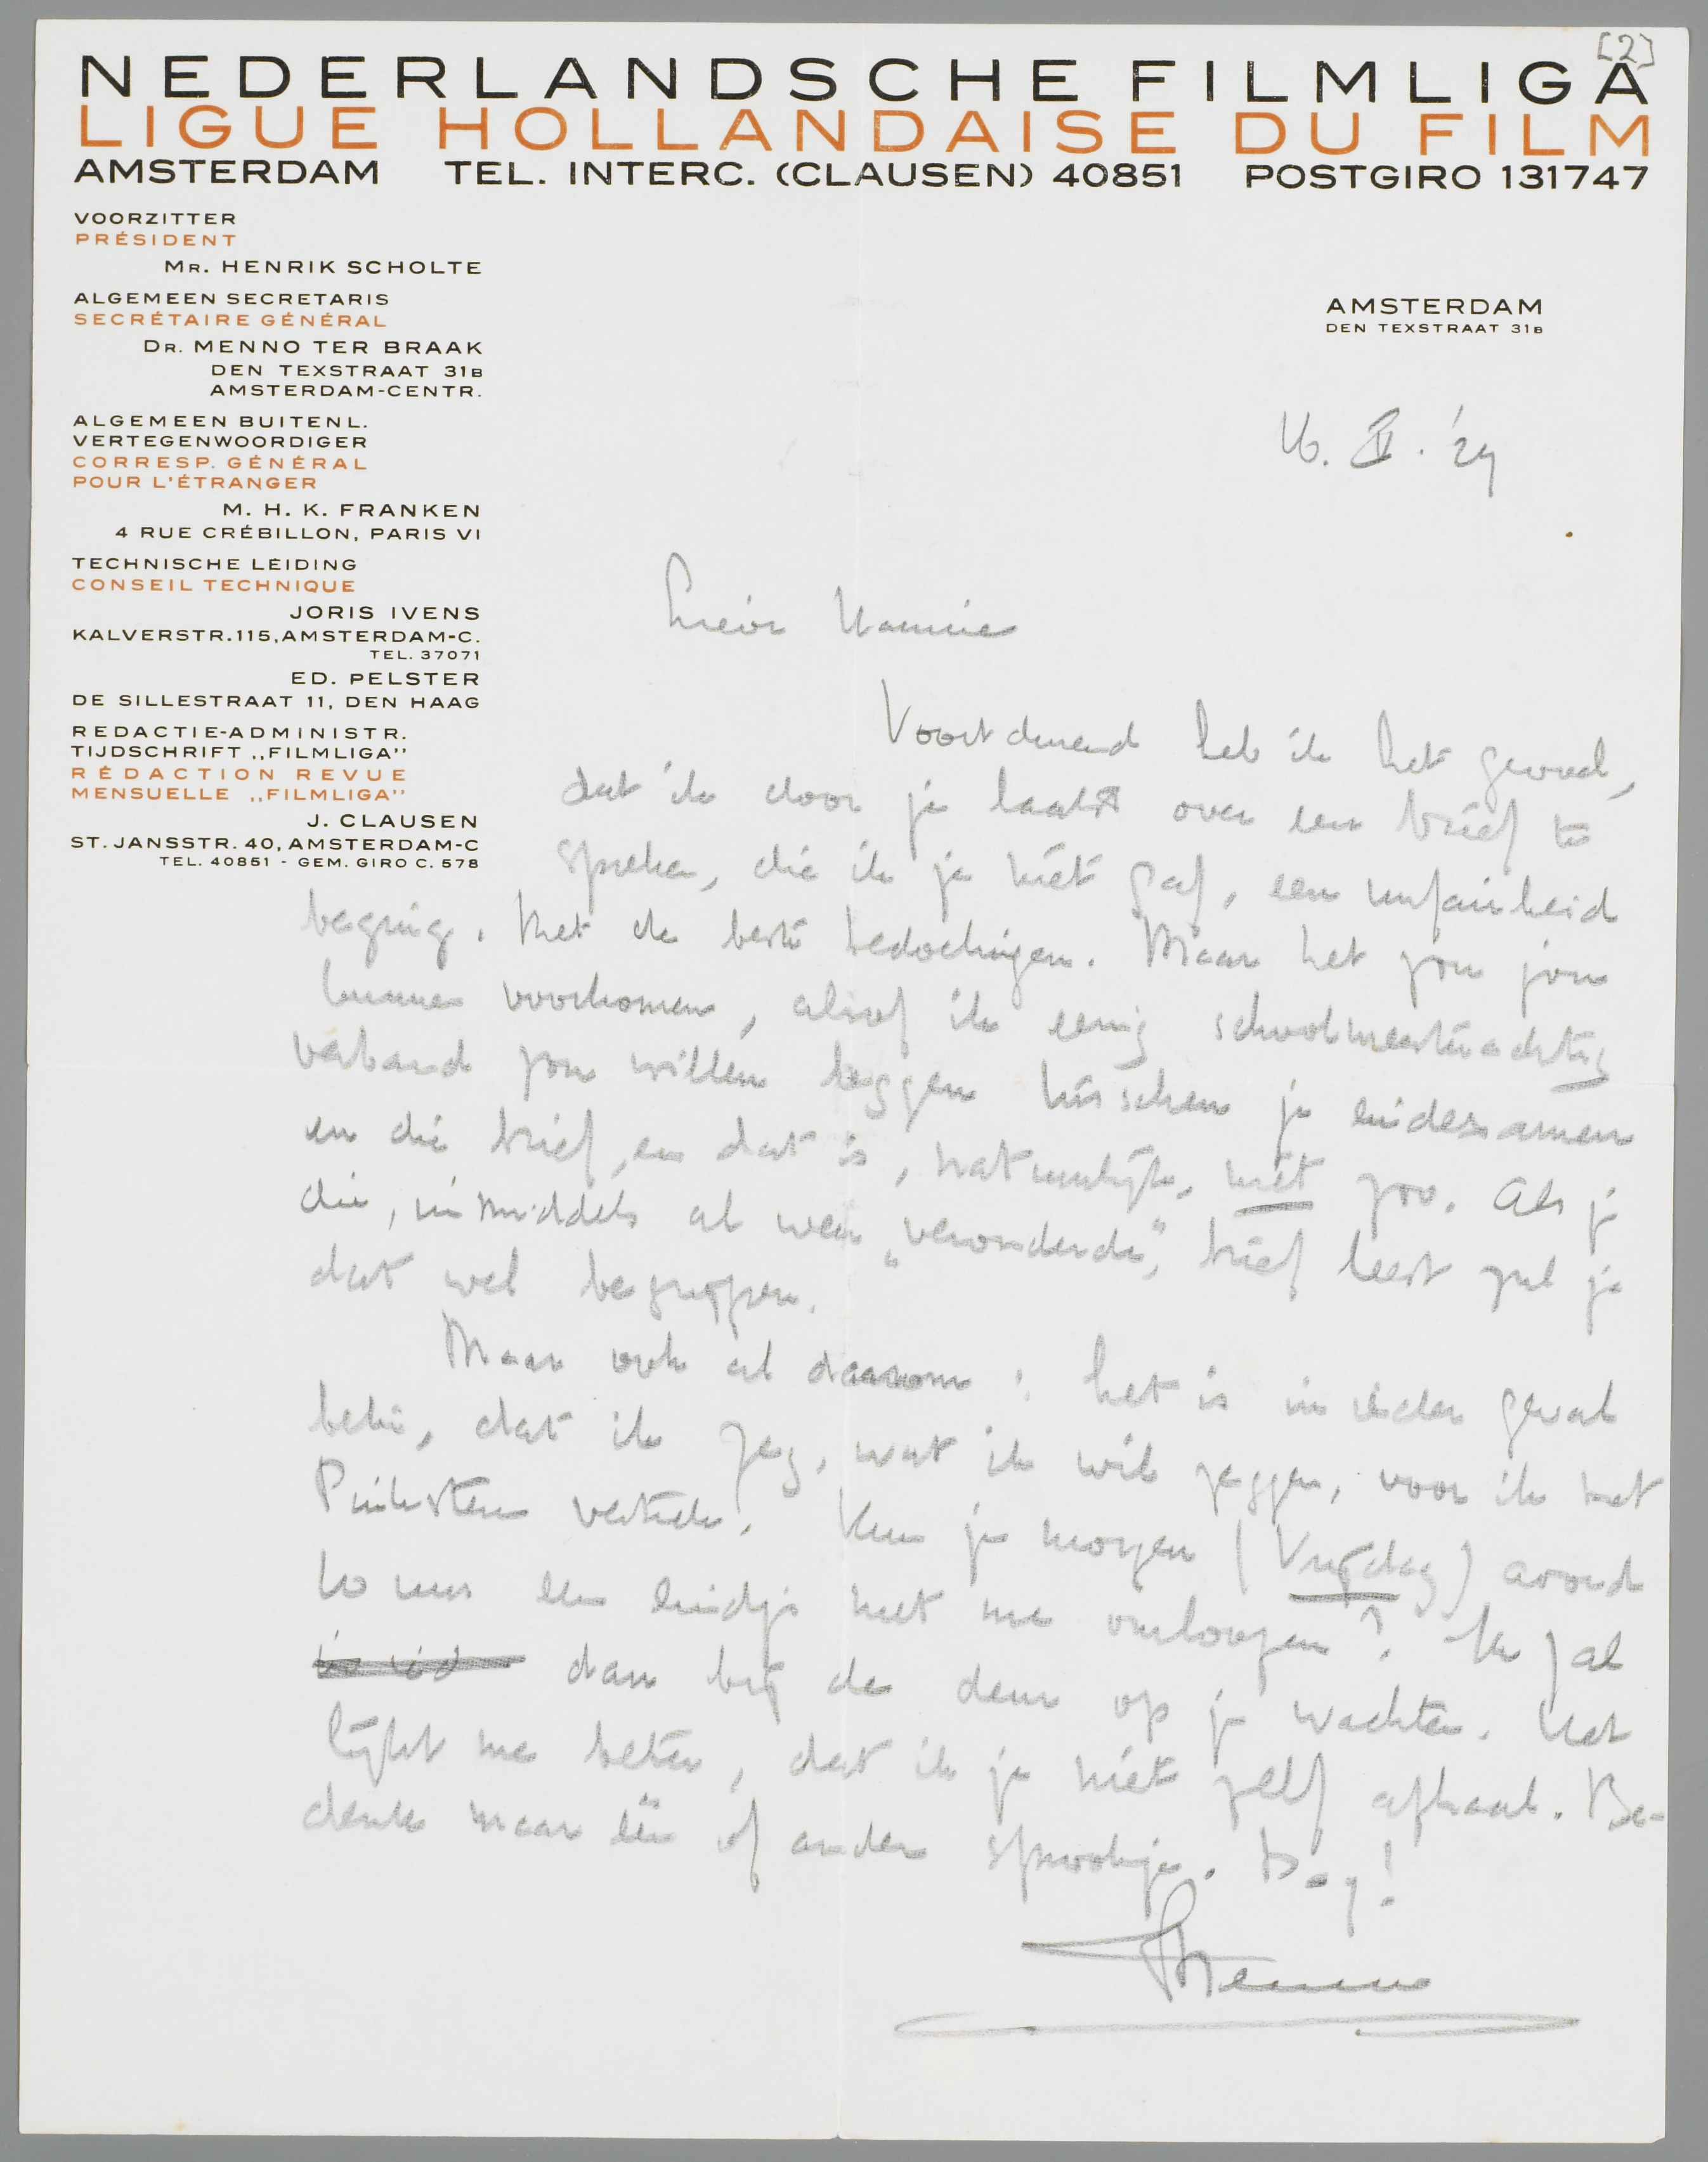 [2]
NEDERLANDSCHE FILMLIGA
LIGUE HOLLANDAISE DU FILM
AMSTERDAM TEL. INTERC. (CLAUSEN) 40851 POSTGIRO 131747
VOORZITTER
PRÉSIDENT
MR. HENRIK SCHOLTE
ALGEMEEN SECRETARIS
SECRÉTAIRE GÉNÉRAL
DR. MENNO TER BRAAK
DEN TEXSTRAAT 31B
AMSTERDAM-CENTR.
ALGEMEEN BUITENL.
VERTEGENWOORDIGER
CORRESP. GÉNÉRAL
POUR L'ÉTRANGER
M. H. K. FRANKEN
4 RUE CRÉBILLON, PARIS VI
TECHNISCHE LEIDING
CONSEIL TECHNIQUE
JORIS IVENS
KALVERSTR.115,AMSTERDAM-C.
TEL. 37071
ED. PELSTER
DE SILLESTRAAT 11, DEN HAAG
REDACTIE-ADMINISTR.
TIJDSCHRIFT „FILMLIGA"
RÉDACTION REVUE
MENSUELLE „FILMLIGA"
J. CLAUSEN
ST. JANSSTR. 40, AMSTERDAM-C
TEL. 40851 - GEM. GIRO C. 578
AMSTERDAM
DEN TEXSTRAAT 31B
16. V. '29
Lieve
Voortdurend heb ik het gevoel,
dat ik door je laatst over een brief te
spreken, die ik je niet gaf, een unfairheid
beging. Met de beste bedoelingen. Maar het zou jou
kunnen voorkomen, alsof ik eenig schoolmeesterachtig
verband zou willen leggen tusschen je eindexamen
en die brief, en dat is, natuurlijk, niet zoo. Als je
die, inmiddels al weer „verouderde", brief leest zul je
dat wel begrijpen.
Maar ook al daarom: het is in ieder geval
beter, dat ik zeg, wat ik wil zeggen, voor ik met
Pinksteren vertrek. Kun je morgen (Vrijdag) avond
10 uur een eindje met me omloopen? Ik zal
dan bij de deur op je wachten. Het
lijkt me beter, dat ik je niet zelf afhaal. Be-
denk maar één of ander sprookje. Dag!
Menno